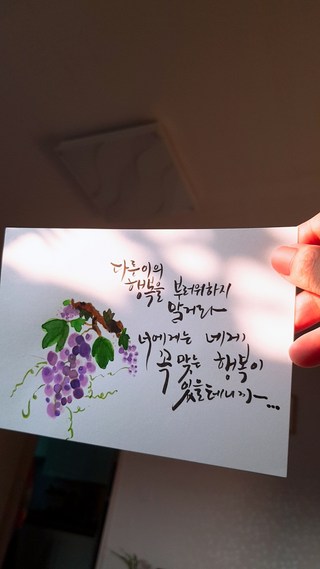 다른이의
행복을 부러워하지
말거라~
너에게는 네게
꼭 맞는 행복이
있을테니까~...